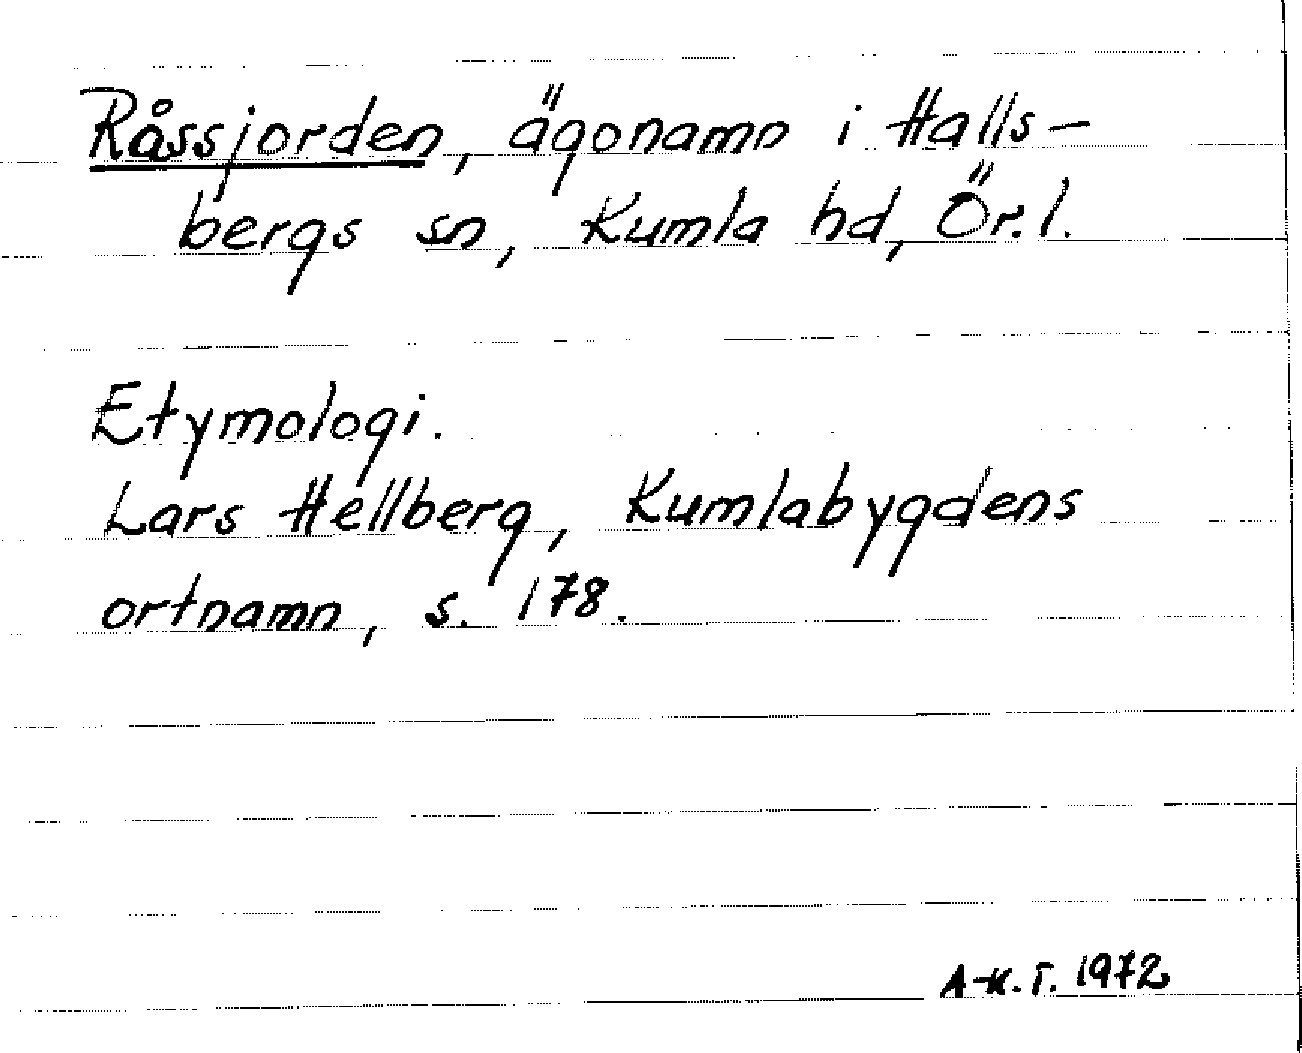 Råssjorden, ägonamn i Halls-
bergs sn, Kumla hd, Ör. l.
Etymologi.
Lars Hellberg, Kumlabygdens
ortnamn, s. 178.
A-K. T. 1972